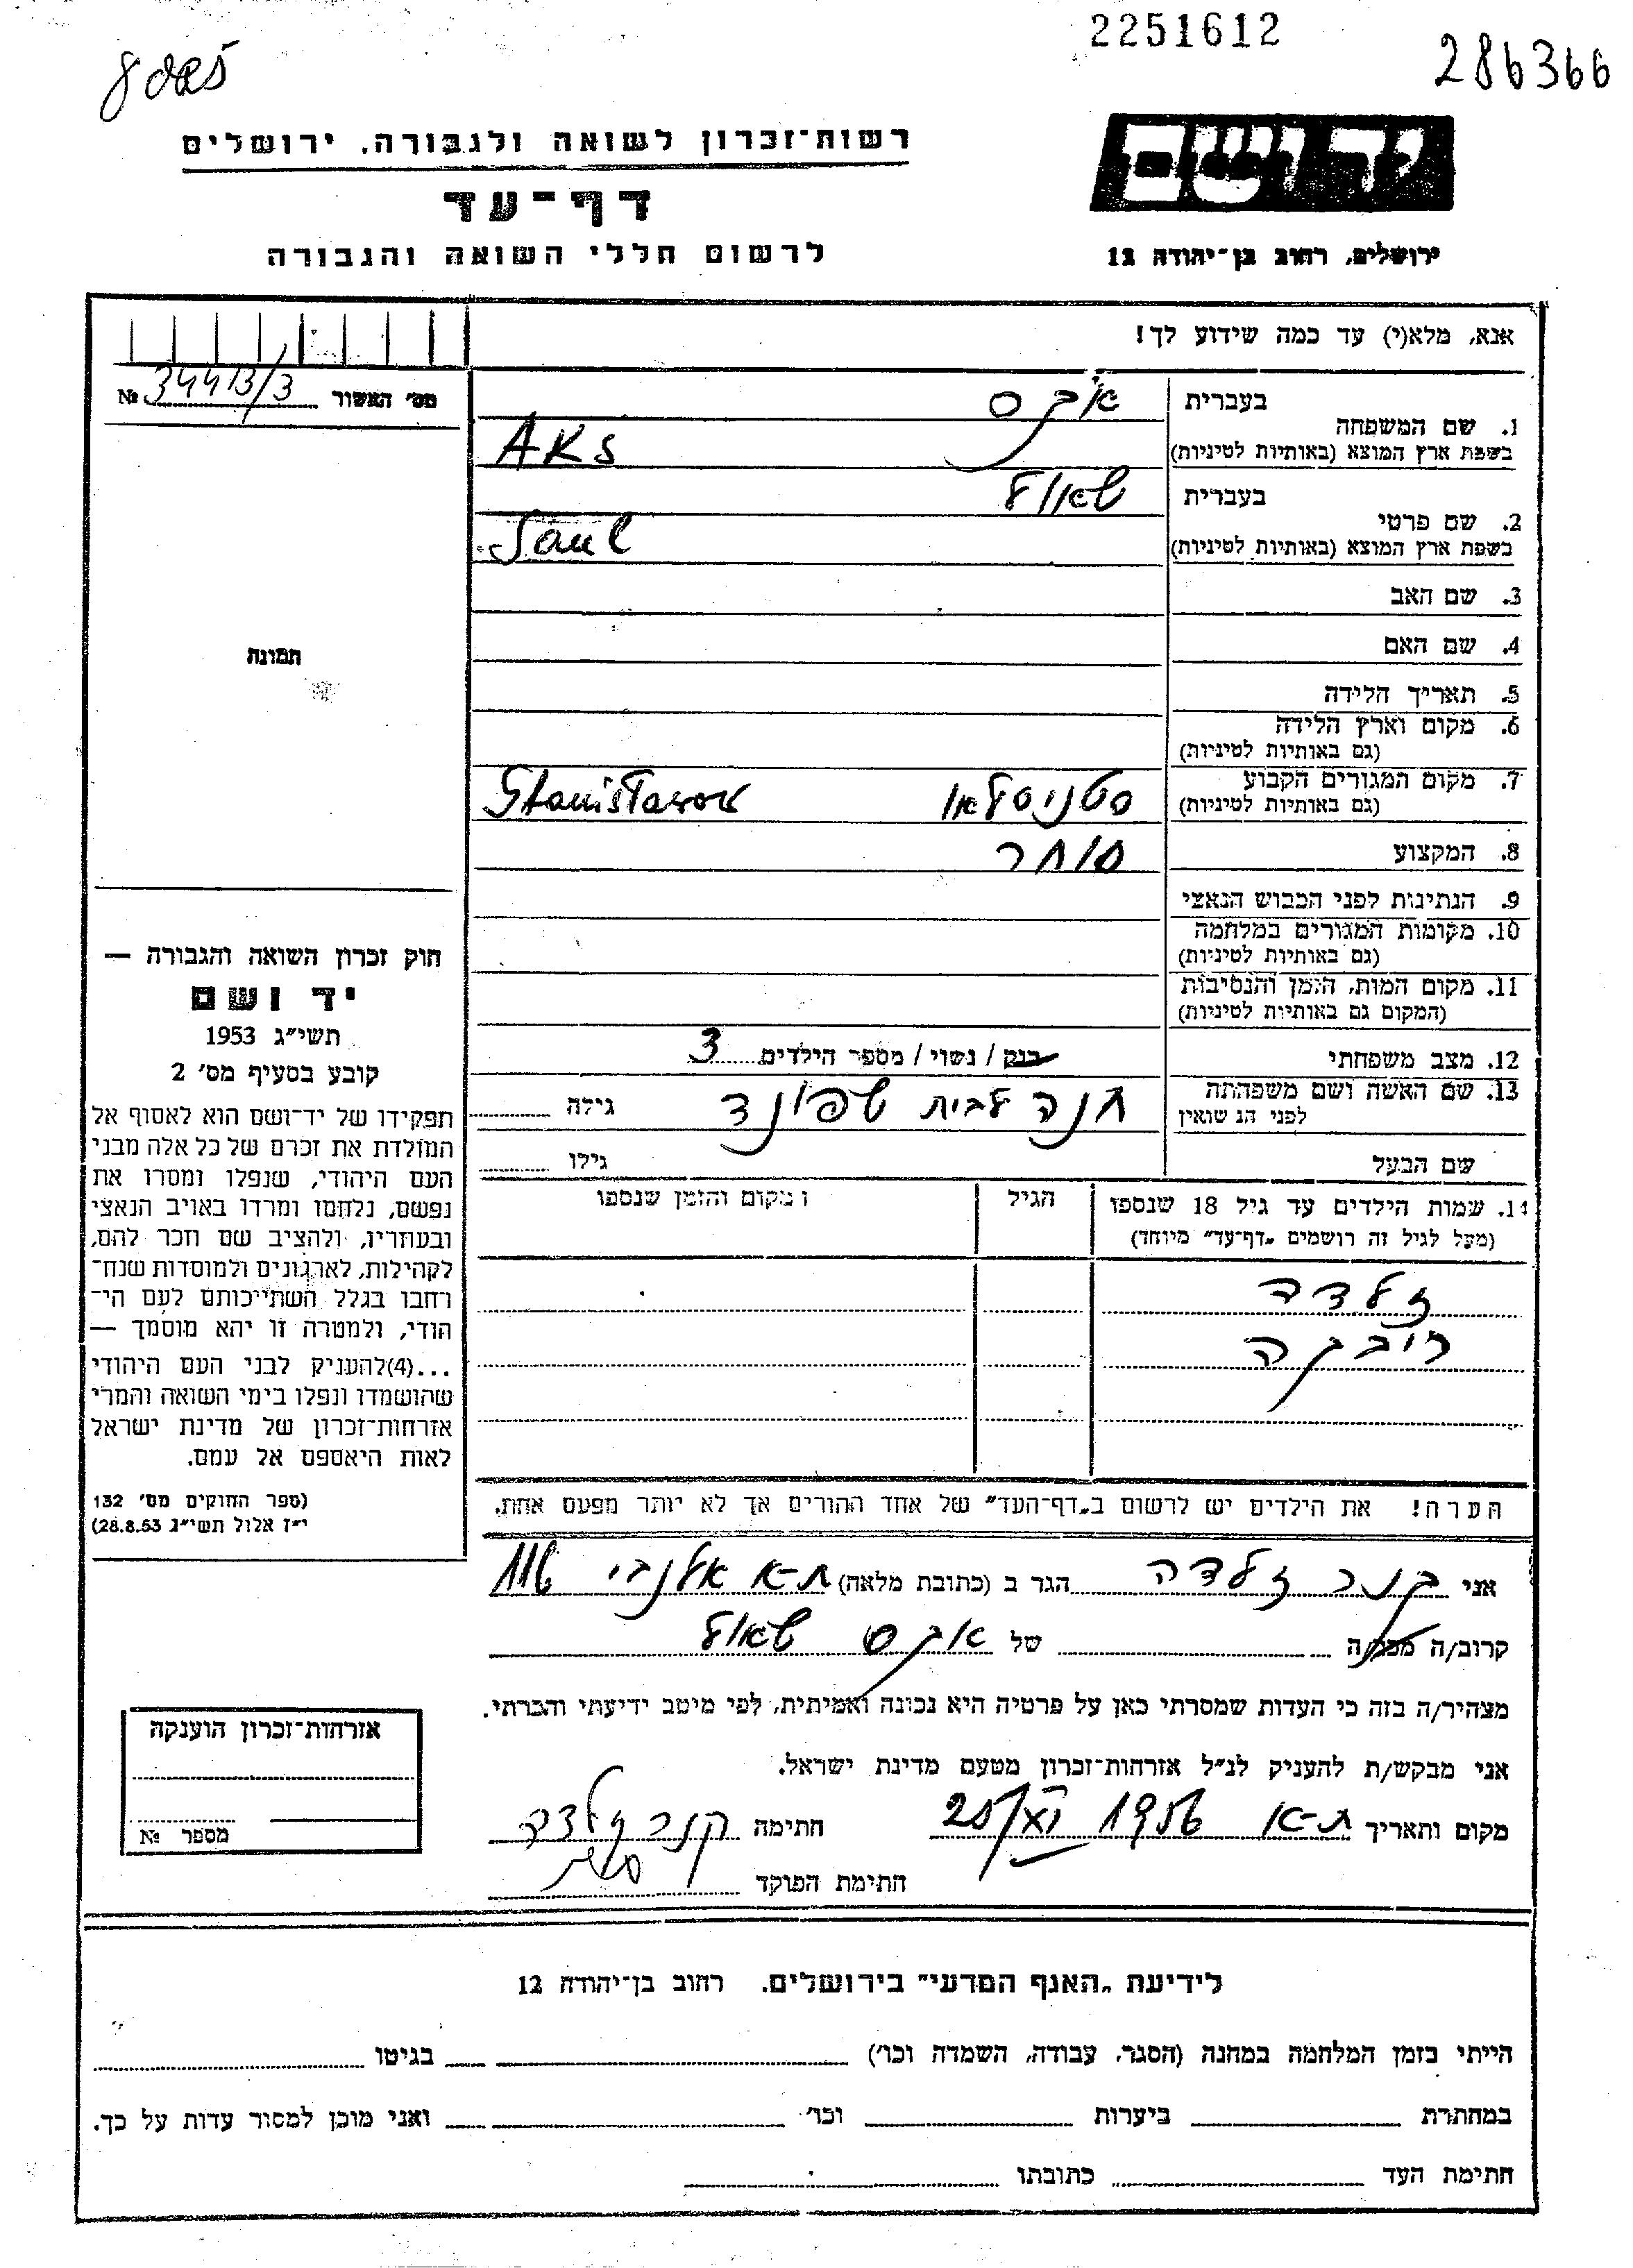 2251612
286366
יד ושם
רשות־זכרון לשואה ולגבורה, ירושלים
דף־עד
לרשום חללי השואה והגבורה
ירושלים, רחוב בן־יהודה 12
אנא, מלא(י) עד כמה שידוע לך!
מס' האשור № 34413/3
תמונה
1. שם המשפחה
בעברית אקס
בשפת ארץ המוצא (באותיות לטיניות) AKS
2. שם פרטי
בעברית שאול
בשפת ארץ המוצא (באותיות לטיניות) Saul
3. שם האב
4. שם האם
5. תאריך הלידה
6. מקום וארץ הלידה
(גם באותיות לטיניות)
7. מקום המגורים הקבוע סטניסלאו Stanisławow
(גם באותיות לטיניות)
8. המקצוע סוחר
9. הנתינות לפני הכבוש הנאצי
10. מקומות המגורים במלחמה
(גם באותיות לטיניות)
11. מקום המות, הזמן והנסיבות
(המקום גם באותיות לטיניות)
12. מצב משפחתי רוק / נשוי / מספר הילדים 3
13. שם האשה ושם משפחתה חנה לבית שפונד גילה
לפני הנשואין
שם הבעל גילו
14. שמות הילדים עד גיל 18 שנספו הגיל ומקום והזמן שנספו
(מעל לגיל זה רושמים "דף־עד" מיוחד)
זלדה
רובקה
הערה! את הילדים יש לרשום ב"דף־העד" של אחד ההורים אך לא יותר מפעם אחת.
חוק זכרון השואה והגבורה —
יד ושם
תשי"ג 1953
קובע בסעיף מס' 2
תפקידו של יד־ושם הוא לאסוף אל
המולדת את זכרם של כל אלה מבני
העם היהודי, שנפלו ומסרו את
נפשם, נלחמו ומרדו באויב הנאצי
ובעוזריו, ולהציב שם וזכר להם,
לקהילות, לארגונים ולמוסדות שנח־
רחבו בגלל השתייכותם לעם הי־
הודי, ולמטרה זו יהא מוסמך —
...(4)להעניק לבני העם היהודי
שהושמדו ונפלו בימי השואה והמרי
אזרחות־זכרון של מדינת ישראל
לאות היאספם אל עמם.
(ספר החוקים מס' 132
י"ז אלול תשי"ג 28.8.53)
אני קנר זלדה הגר ב (כתובת מלאה) ת-א אלנבי 116
קרוב/ה מכר/ה של אקס שאול
מצהיר/ה בזה כי העדות שמסרתי כאן על פרטיה היא נכונה ואמיתית, לפי מיטב ידיעתי והכרתי.
אני מבקש/ת להעניק לנ"ל אזרחות־זכרון מטעם מדינת ישראל.
מקום ותאריך ת-א 1956 חתימה קנר זלדה
חתימת הפוקד
אזרחות־זכרון הוענקה
מספר №
לידיעת "האגף המדעי" בירושלים, רחוב בן־יהודה 12
הייתי בזמן המלחמה במחנה (הסגר, עבודה, השמדה וכו') בגיטו
במחתרת ביערות וכו' ואני מוכן למסור עדות על כך.
חתימת העד כתובתו